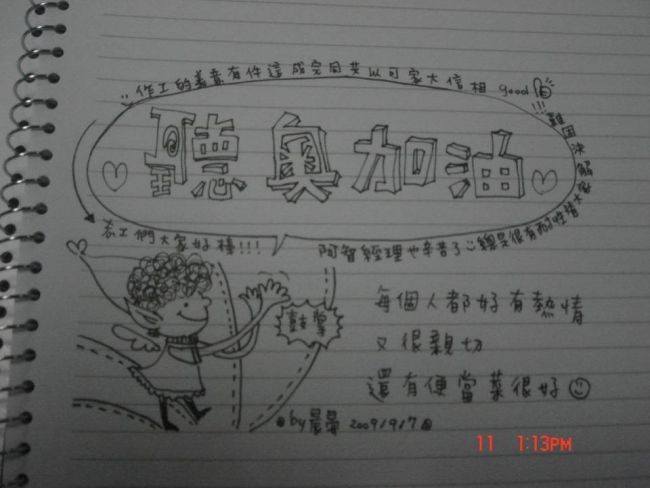 聽奧加油
阿智經理也辛苦了 :) 總是很有耐性替大家解決困難!!!
good 相信大家可以共同完成這件有意義的工作 :)
志工們大家好棒!!!
鼓掌
每個人都好有熱情
又很親切
還有便當菜很好
by 2009/9/17
11 1:13PM